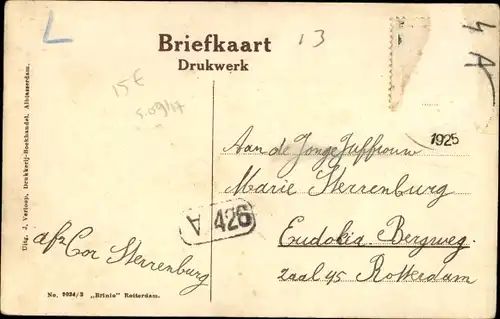 L
Briefkaart
Drukwerk
13
4 A
15€
5.09/17
1925
Aan de Jongejuffrouw
Marie Sterrenburg
Eudokia Bergweg.
zaal 45 Rotterdam
A 426
afz Cor Sterrenburg
Uitg. J. Verloop, Drukkerij-Boekhandel, Alblasserdam.
No. 9934/3 „Brinio" Rotterdam.